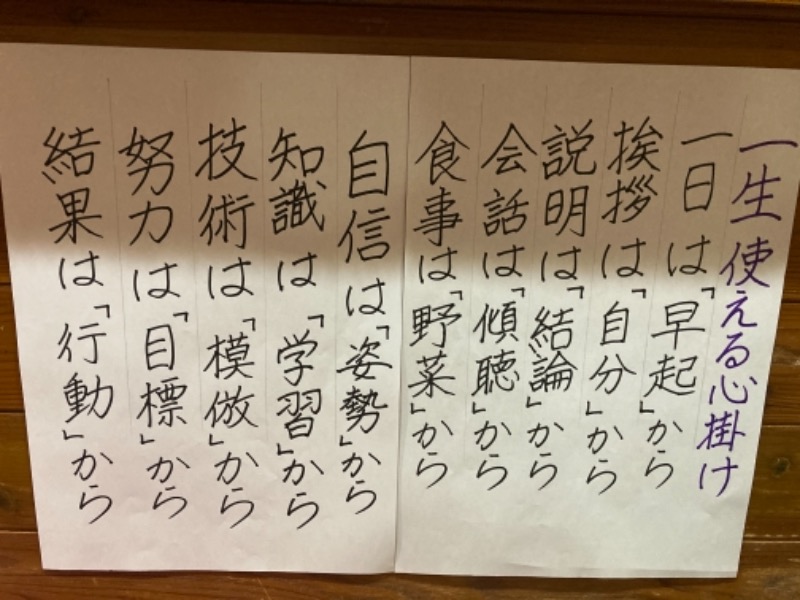 一生使える心掛け
一日は「早起」から
挨拶は「自分」から
説明は「結論」から
会話は「傾聴」から
食事は「野菜」から
自信は「姿勢」から
知識は「学習」から
技術は「模倣」から
努力は「目標」から
結果は「行動」から